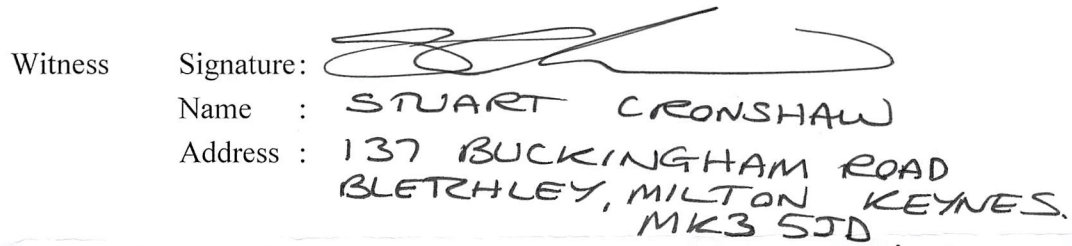 Witness Signature:
Name : STUART CRONSHAW
Address : 137 BUCKINGHAM ROAD
BLETCHLEY, MILTON KEYNES.
MK3 5JD